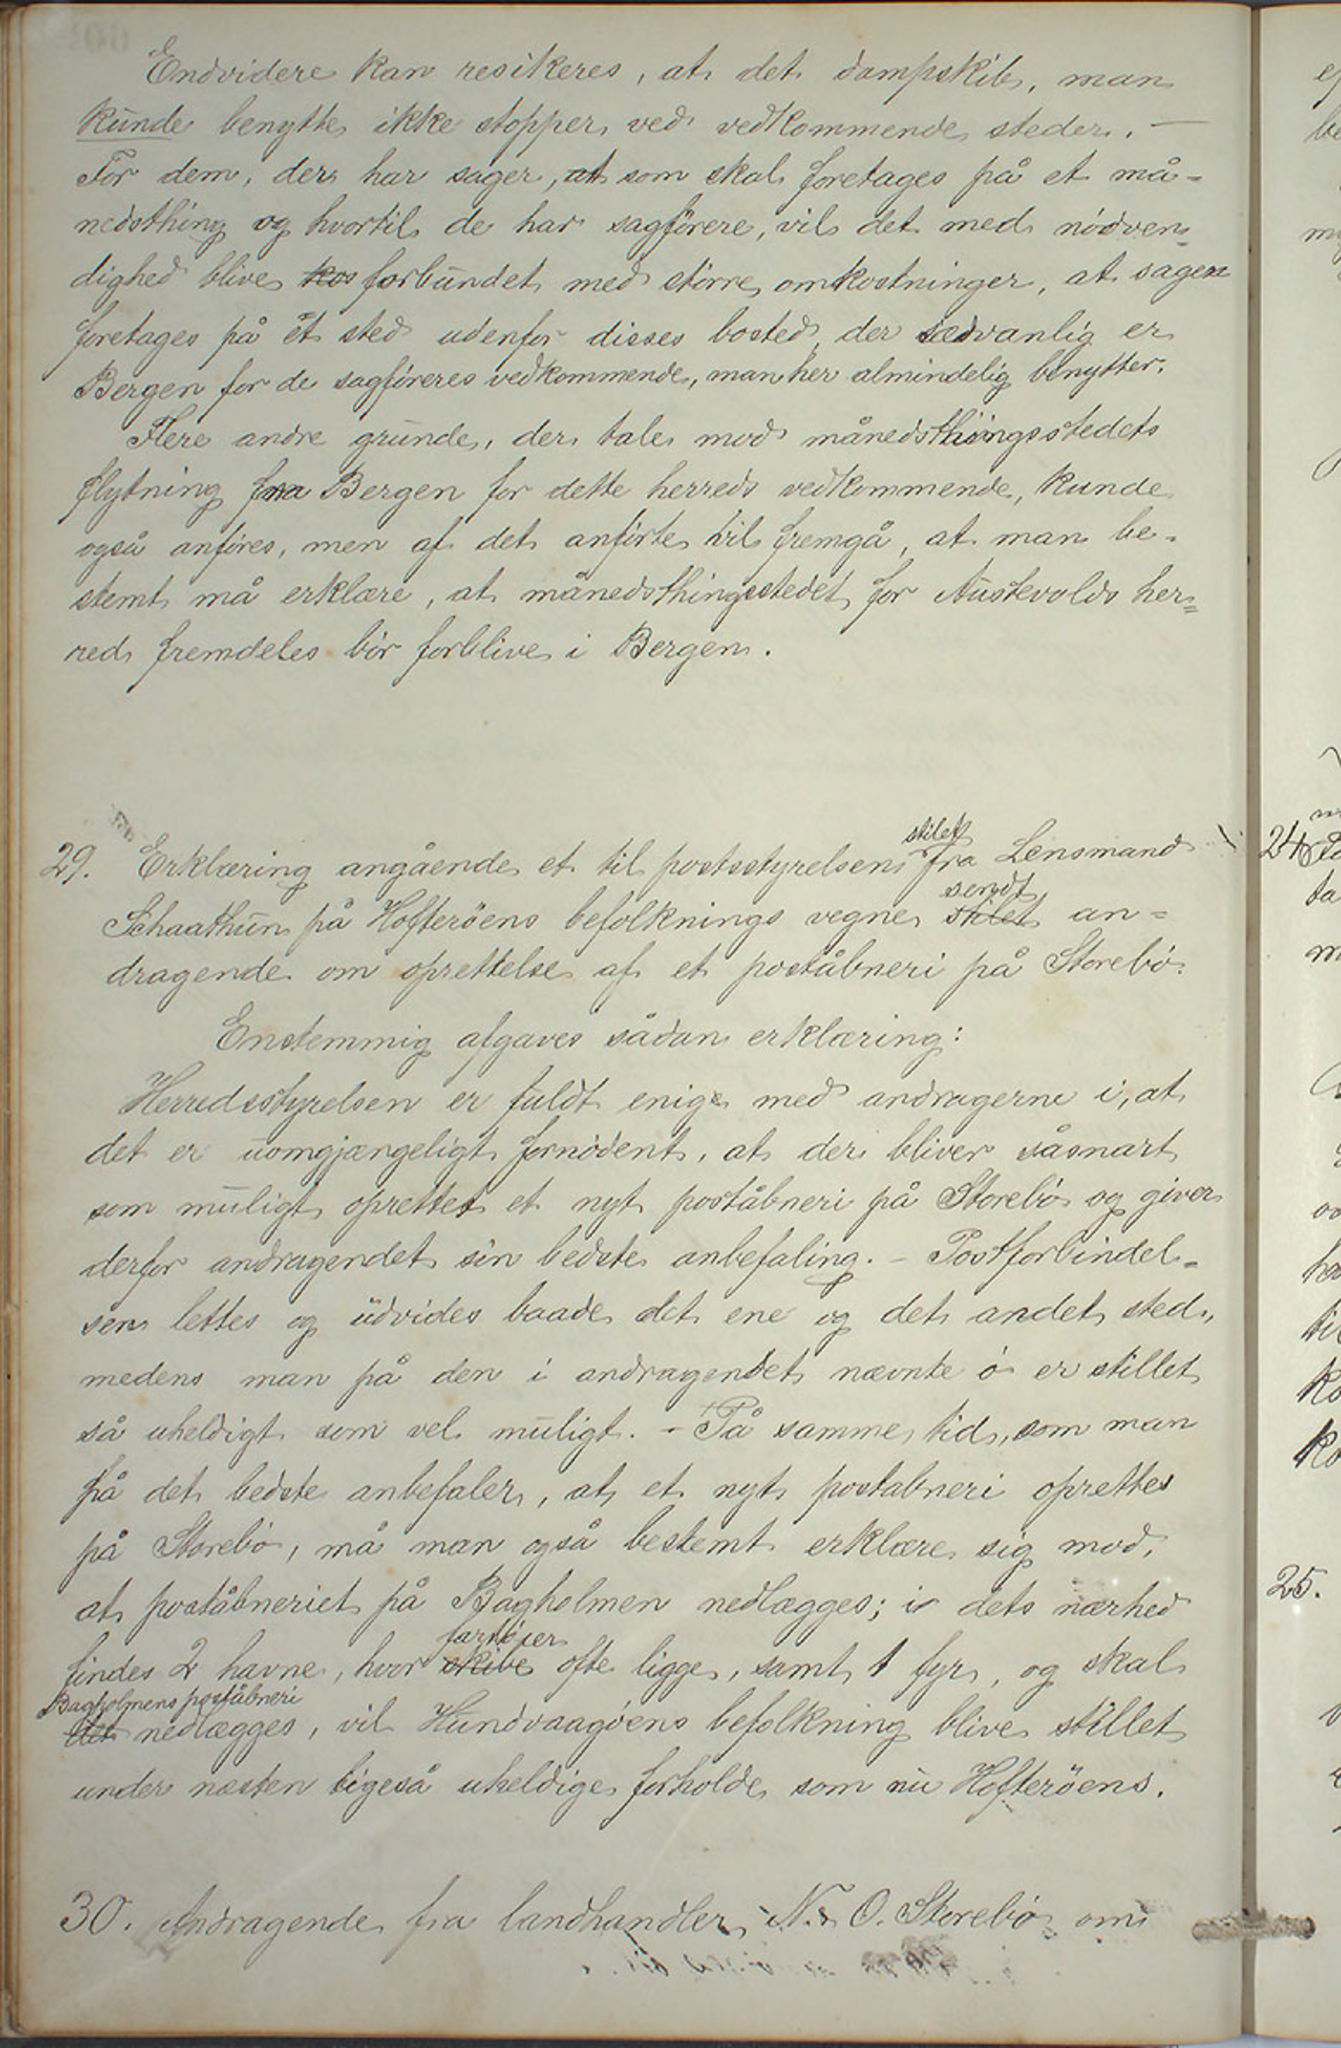 Endvidere kan resikeres, at det dampskib, man
kunde benytte ikke stopper ved vedkommende steder. —
For dem, der har sager, at som skal foretages på et må-
nedsthing og hvortil de har sagførere, vil det med nødven-
dighed blive kos forbundet med større omkostninger, at sagen
foretages på ét sted udenfor disses bosted, der sædvanlig er
Bergen for de sagføreres vedkommende, man her almindelig benytter.
Flere andre grunde, der tale mod månedsthingsstedets
flytning fra Bergen for dette herreds vedkommende, kunde
også anføres, men af det anførte vil fremgå, at man be-
stemt må erklære, at månedsthingsstedet for Austevolds her-
red fremdeles bør forblive i Bergen.
29. Erklæring angående et til postsstyrelsen stilet fra Lensmand
Schaathun på Hofterøens befolknings vegne stilet sendt an-
dragende om oprettelse af et poståbneri på Storebø.
Enstemmig afgaves sådan erklæring:
Herredsstyrelsen er fuldt enige med andragerne i, at
det er uomgjængeligt fornødent, at der bliver såsnart
som muligt oprettet et nyt poståbneri på Storebø og giver
derfor andragendet sin bedste anbefaling. - Postforbindel-
sen lettes og udvides baade det ene og det andet sted,
medens man på den i andragendet nævnte ø er stillet
så uheldigt som vel muligt. - På samme tid, som man
på det bedste anbefaler, at et nyt postabneri oprettes
på Storebø, må man også bestemt erklære sig mod,
at poståbneriet på Bagholmen nedlægges; i dets nærhed
findes 2 havne, hvor skibe fartøier ofte ligge, samt 1 fyr, og skal
det Bagholmens poståbneri nedlægges, vil Hundvaagøens befolkning blive stillet
under næsten ligeså uheldige forholde som nu Hofterøens.
30. Andragende fra landhandler N. O. Storebø om